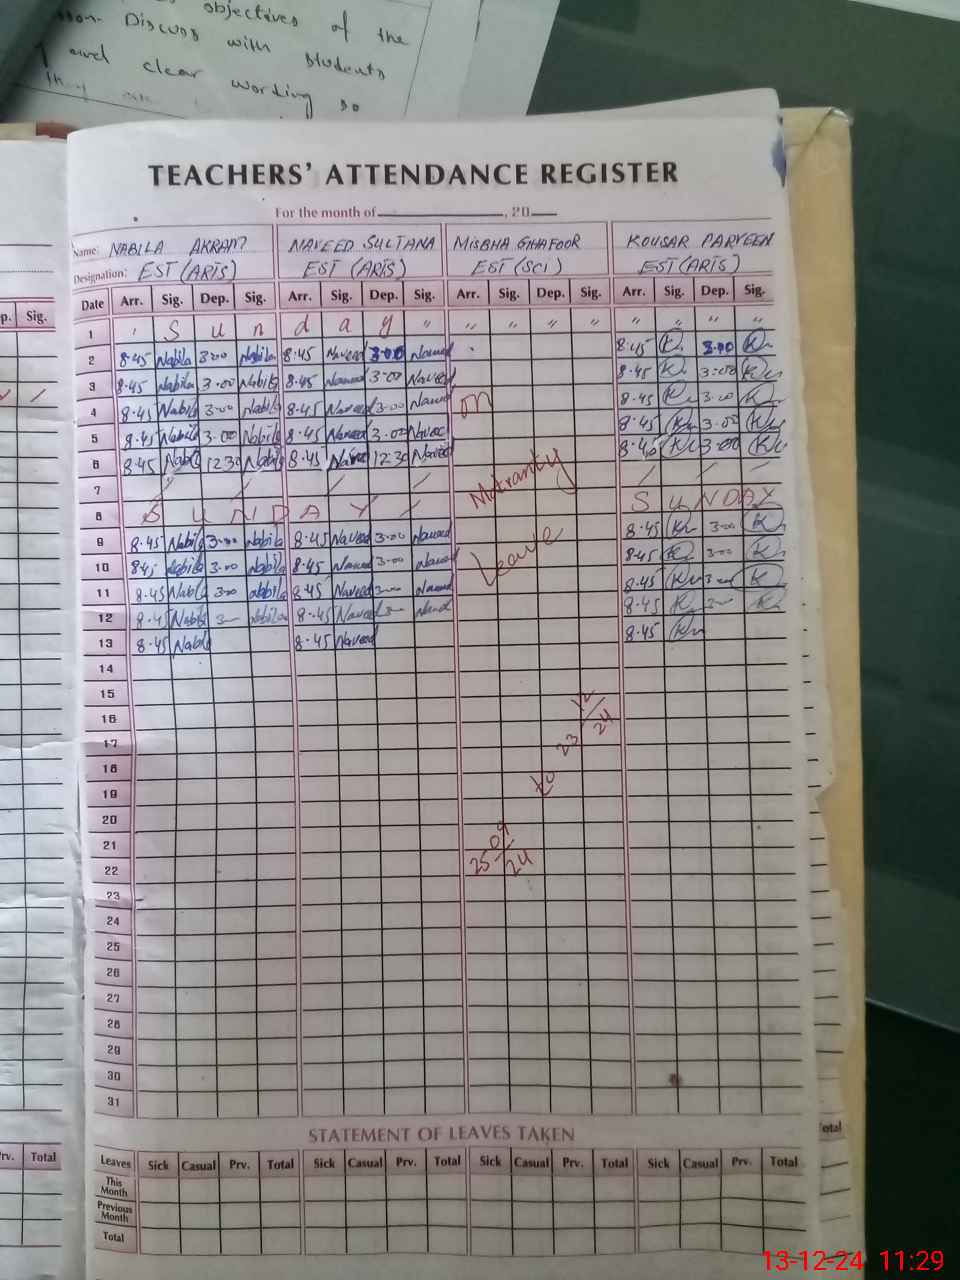 objectives of the
Discuss with students
and clear wording so
TEACHERS' ATTENDANCE REGISTER
For the month of , 20
Name: NABILA AKRAM NAVEED SULTANA MISBHA GHAFOOR KOUSAR PARVEEN
Designation: EST (ARTS) EST (ARTS) EST (SCI) EST (ARTS)
p. Sig.
Date Arr. Sig. Dep. Sig. Arr. Sig. Dep. Sig. Arr. Sig. Dep. Sig. Arr. Sig. Dep. Sig.
1 S u n d a y " " " " " " " " "
2 8.45 Nabila 3.00 Nabila 8.45 Naveed 3.00 Naveed 8.45 K 3.00 K
3 8.45 Nabila 3.00 Nabila 8.45 Naveed 3.00 Naveed 8.45 K 3.00 K
4 8.45 Nabila 3.00 Nabila 8.45 Naveed 3.00 Naveed on 8.45 K 3.00 K
5 8.45 Nabila 3.00 Nabila 8.45 Naveed 3.00 Naveed 8.45 K 3.00 K
6 8.45 Nabila 12.30 Nabila 8.45 Naveed 12.30 Naveed 8.45 K 3.00 K
7 Matranty
8 S U N D A Y S U N D A Y
9 8.45 Nabila 3.00 Nabila 8.45 Naveed 3.00 Naveed 8.45 K 3.00 K
10 8.45 Nabila 3.00 Nabila 8.45 Naveed 3.00 Naveed Leave 8.45 K 3.00 K
11 8.45 Nabila 3.00 Nabila 8.45 Naveed 3.00 Naveed 8.45 K 3 K
12 8.45 Nabila 3 Nabila 8.45 Naveed 3 Naveed 8.45 K 3 K
13 8.45 Nabila 8.45 Naveed 8.45 K
14
15
16
17 23 12/24
18
19 to
20
21
22 25 09/24
23
24
25
26
27
28
29
30
31
STATEMENT OF LEAVES TAKEN
Prv. Total
Leaves Sick Casual Prv. Total Sick Casual Prv. Total Sick Casual Prv. Total Sick Casual Prv. Total
This Month
Previous Month
Total
13-12-24 11:29